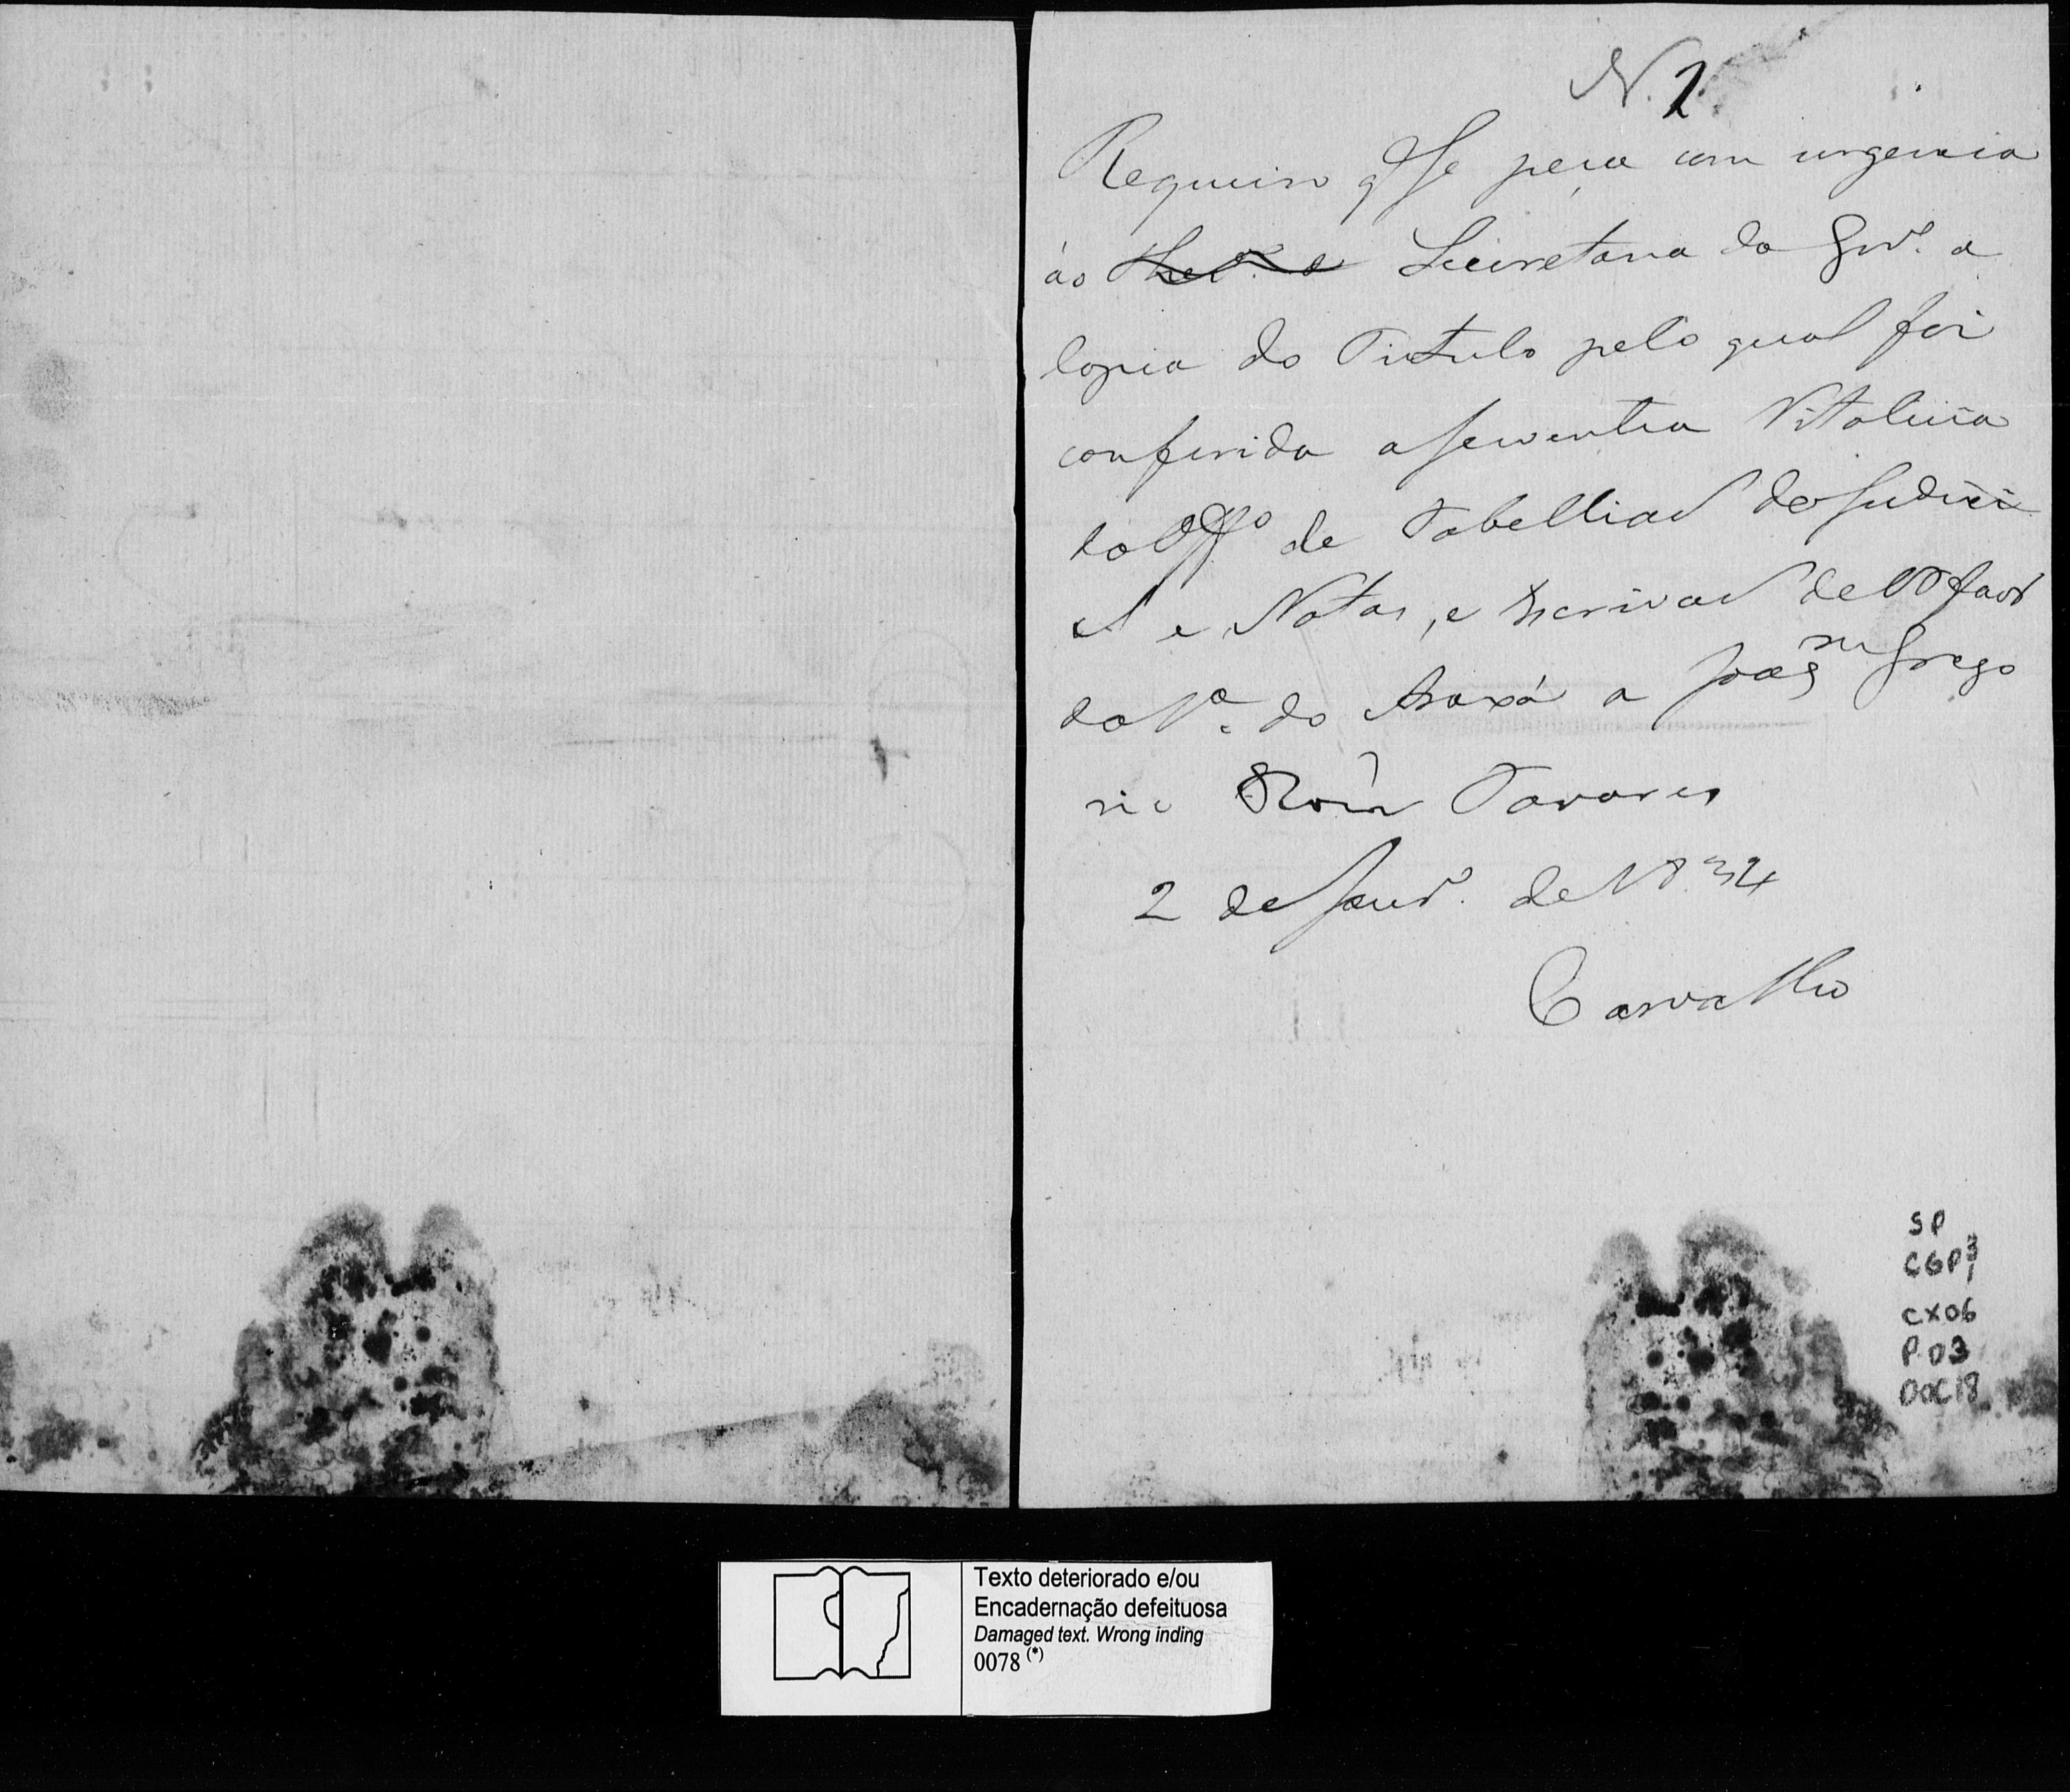 N. 2
Requeiro q Se peça com urgencia
áo Thes.º e Secretaria do Gov.º a
Copia do Titulo pelo qual foi
conferida a Serventia Vitalicia
do Off.º de Tabelliaõ do Judici
al e Notas, e Escrivaõ de Orfaõs
da V.ª do Araxá a Joaq.m Grego
rio Tavares
2 de Janr.º de 1834
Carvalho
SP
CGP 3/1
CX06
P.03
DOC18
Texto deteriorado e/ou
Encadernação defeituosa
Damaged text. Wrong inding
0078 (*)